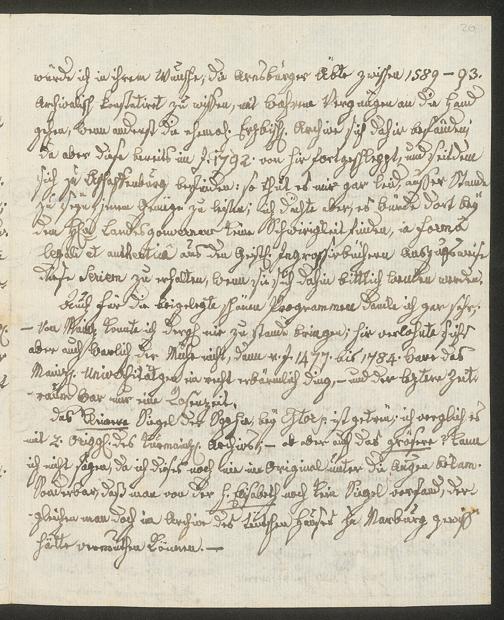 20
würde ich in ihrem Wunsche, die Arnsburger Äbte zwischen 1589 – 93.
Archivalisch konstatirt zu wissen, mit wahrem Vergnügen an die Hand
gehen, wenn anderst die ehemal. Erzbisch. Archive sich dahir befänden;
Da aber diese bereits im J. 1792. von hir fortgeschleppt, und seitdem
sich zu Aschaffenburg befinden: so thut es mir gar leid, ausser Stande
zu seyn, ihnen Genüge zu leisten; ich dächte aber, es würde dort bey
dem Landesgouverneur keine Schwierigkeit finden, in forma
legali et authentica aus den Geistl. Ingrossirbüchern Auszugsweise
diese Seriem zu erhalten, wenn sie sich dahin bittlich wenden werden.
Auch für die beigelegte schöne Programmen danke ich gar sehr.
– Von Mainz konnte ich dergl. nie zu stande bringen; hir verlohnte sichs
aber auch warlich der Mühe nicht, denn v. J. 1477. bis 1784. ware das
Mainz. Universitätgen ein recht erbärmlich Ding, – und der letztere Zeit-
raum war nur eine
Das kleinere Siegel der Sophia, bey Estor, ist getreu; ich verglich es
mit 2. Origg. des Archivs; – ob aber auch das grösere? kann
ich nicht sagen, da ich dieses noch nie im Original unter die Augen bekam.
Sonderbar, daß man von der h. Elisabeth noch kein Siegel vorfand, der-
gleichen man doch im Archive des teutschen Hauses zu Marburg gewiß
hätte vermuthen können. –